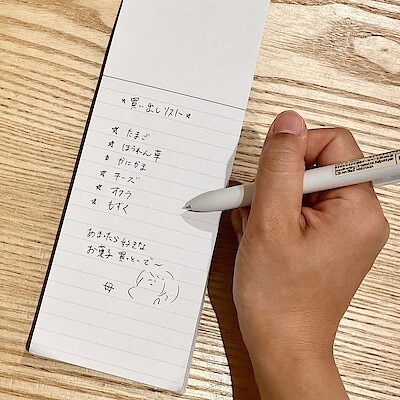 ☆買い出しリスト☆
☆ たまご
☆ ほうれん草
☆ かにかま
☆ チーズ
☆ オクラ
☆ もずく
あまったら好きな
お菓子買っといで〜
母